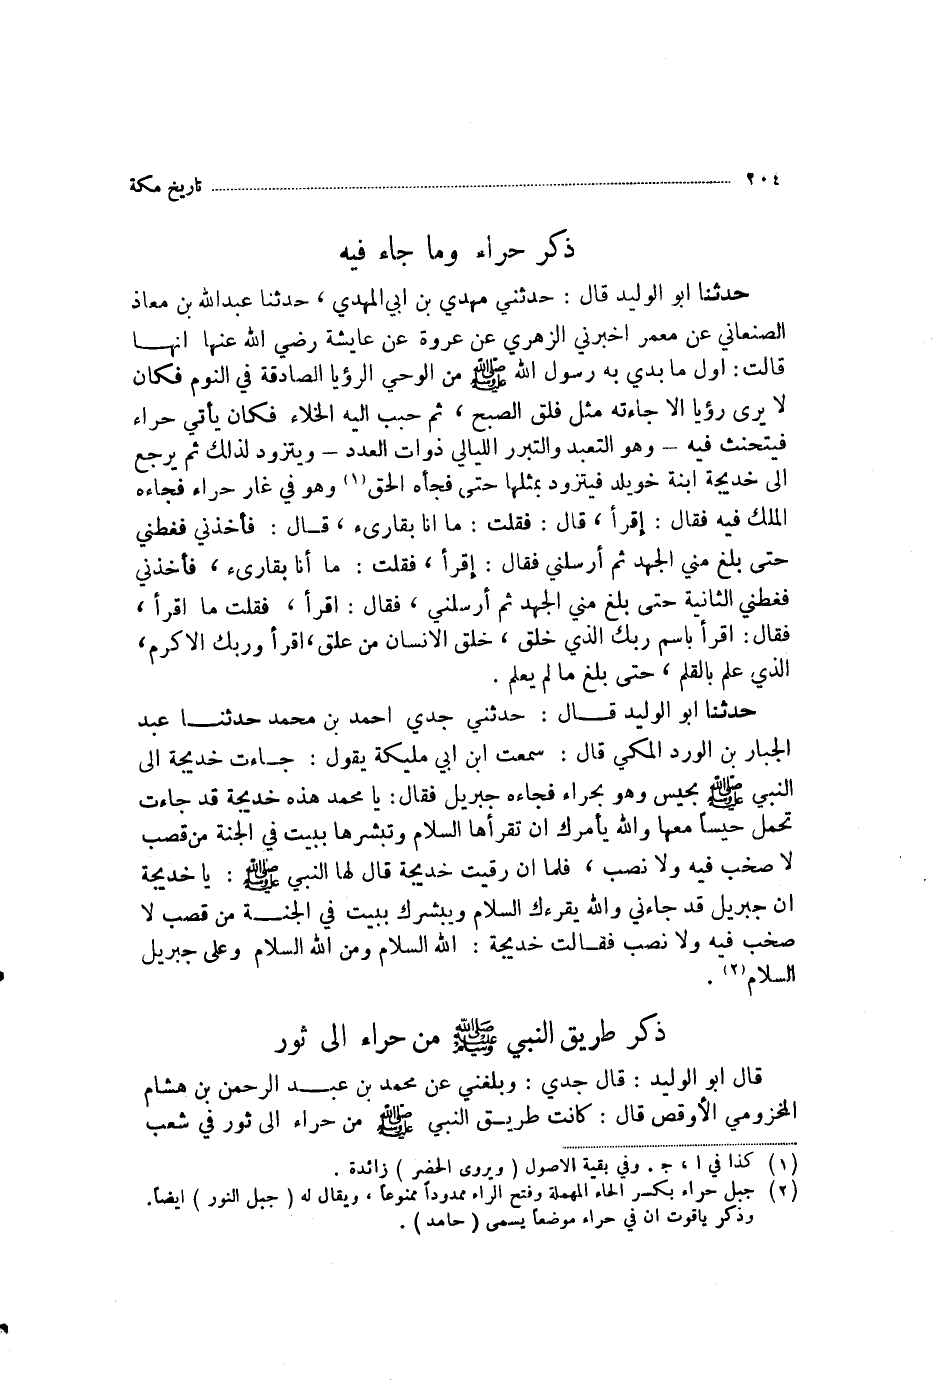 ٢٠٤ ........ تاريخ مكة
ذكر حراء وما جاء فيه
حدثنا ابو الوليد قال : حدثني مهدي بن ابي المهدي ، حدثنا عبدالله بن معاذ
الصنعاني عن معمر اخبرني الزهري عن عروة عن عايشة رضي الله عنها انهـــا
قالت: اول ما بدي به رسول الله ﷺ من الوحي الرؤيا الصادقة في النوم فكان
لا يرى رؤيا الا جاءته مثل فلق الصبح ، ثم حبب اليه الخلاء فكان يأتي حراء
فيتحنث فيه – وهو التعبد والتبرر الليالي ذوات العدد – ويتزود لذلك ثم يرجع
الى خديجة ابنة خويلد فيتزود بمثلها حتى فجأه الحق(١) وهو في غار حراء فجاءه
الملك فيه فقال : إقرأ ، قال : فقلت : ما انا بقارىء ، قـال : فأخذني فغطني
حتى بلغ مني الجهد ثم أرسلني فقال : إقرأ ، فقلت : ما أنا بقارىء ، فأخذني
فغطني الثانية حتى بلغ مني الجهد ثم أرسلني ، فقال : اقرأ ، فقلت ما اقرأ ،
فقال: اقرأ باسم ربك الذي خلق ، خلق الانسان من علق ، اقرأ وربك الاكرم ،
الذي علم بالقلم ، حتى بلغ ما لم يعلم .
حدثنا ابو الوليد قـــال : حدثني جدي احمد بن محمد حدثنـــا عبد
الجبار بن الورد المكي قال : سمعت ابن ابي مليكة يقول : جـاءت خديجة الى
النبي ﷺ بحيس وهو بحراء فجاءه جبريل فقال: يا محمد هذه خديجة قد جاءت
تحمل حيساً معها والله يأمرك ان تقرأها السلام وتبشرها ببيت في الجنة من قصب
لا صخب فيه ولا نصب ، فلما ان رقيت خديجة قال لها النبي ﷺ : يا خديجة
ان جبريل قد جاءني والله يقرءك السلام ويبشرك ببيت في الجنـــة من قصب لا
صخب فيه ولا نصب فقـالت خديجة : الله السلام ومن الله السلام وعلى جبريل
السلام(٢) .
ذكر طريق النبي ﷺ من حراء الى ثور
قال ابو الوليد : قال جدي : وبلغني عن محمد بن عبـــد الرحمن بن هشام
المخزومي الأوقص قال : كانت طريـق النبي ﷺ من حراء الى ثور في شعب
(١) كذا في ا ، جـ . وفي بقية الاصول ( ويروى الحضر ) زائدة .
(٢) جبل حراء بكسر الحاء المهملة وفتح الراء ممدوداً ممنوعاً ، ويقال له ( جبل النور ) ايضاً.
وذكر ياقوت ان في حراء موضعاً يسمى ( حامد ) .